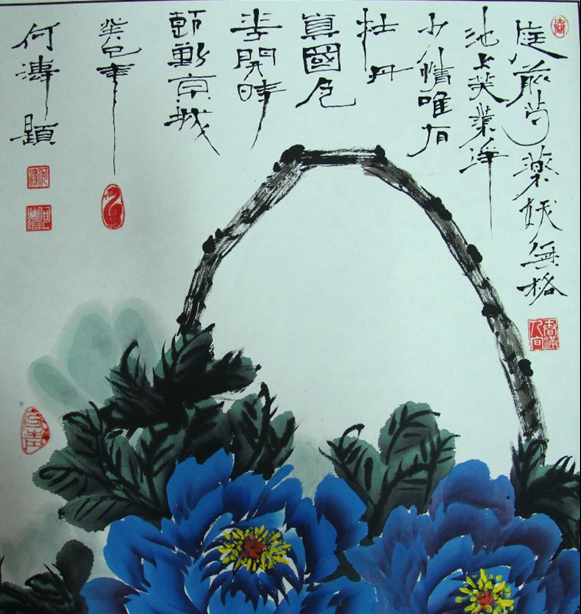 庭前芍藥妖無格
池上芙蕖淨
少情唯有
牡丹
真國色
花開時
節動京城
癸巳年
何濤題
春滿人間